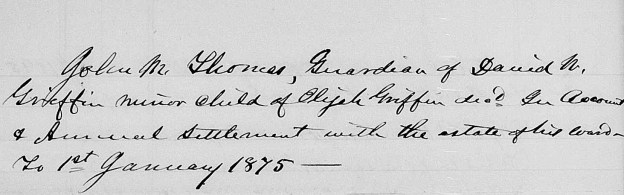 John M. Thomas, Guardian of David N.
Grieffin minor child of Elijah Griffin decd In Account
& Annual Settlement with the estate of his ward
To 1st January 1875 —